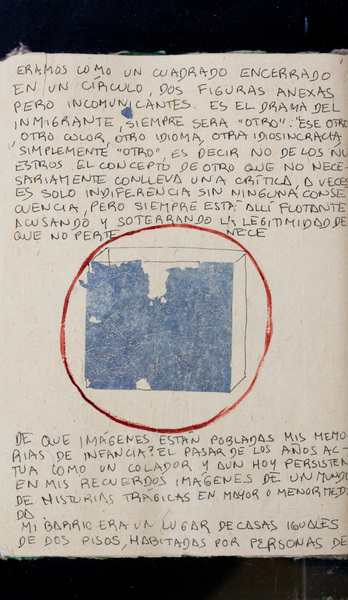 ERAMOS COMO UN CUADRADO ENCERRADO
EN UN CÍRCULO, DOS FIGURAS ANEXAS
PERO INCOMUNICANTES. ES EL DRAMA DEL
INMIGRANTE, SIEMPRE SERA "OTRO". ESE OTRO
, OTRO COLOR, OTRO IDIOMA, OTRA IDIOSINCRACIA
, SIMPLEMENTE "OTRO", ES DECIR NO DE LOS NU
ESTROS EL CONCEPTO DE OTRO QUE NO NECE-
SARIAMENTE CONLLEVA UNA CRÍTICA, A VECES
ES SOLO INDIFERENCIA SIN NINGUNA CONSE
CUENCIA, PERO SIEMPRE ESTA ALLÍ FLOTANTE
ACUSANDO Y SOTERRANDO LA LEGITIMIDAD DE
QUE NO PERTE NECE
DE QUE IMÁGENES ESTÁN POBLADAS MIS MEMO-
RIAS DE INFANCIA? EL PASAR DE LOS AÑOS AC-
TUA COMO UN COLADOR Y AUN HOY PERSISTEN
EN MIS RECUERDOS IMÁGENES DE UN MUNDO
DE HISTORIAS TRÁGICAS EN MAYOR O MENOR MEDI
DA.
MI BARRIO ERA UN LUGAR DE CASAS IGUALES
DE DOS PISOS, HABITADAS POR PERSONAS DE